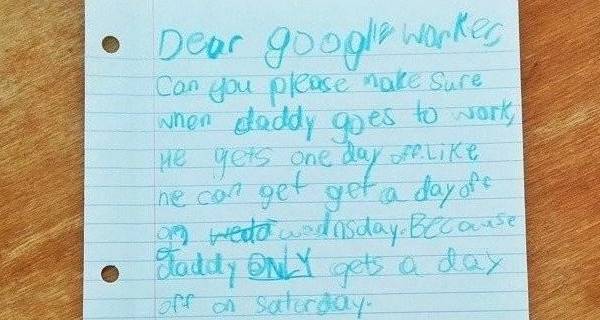 Dear google worker,
Can you please make sure
when daddy goes to work,
He gets one day off. Like
he can get get a day off
on wedo wadnsday. BECause
daddy ONLY gets a day
off on saturday.